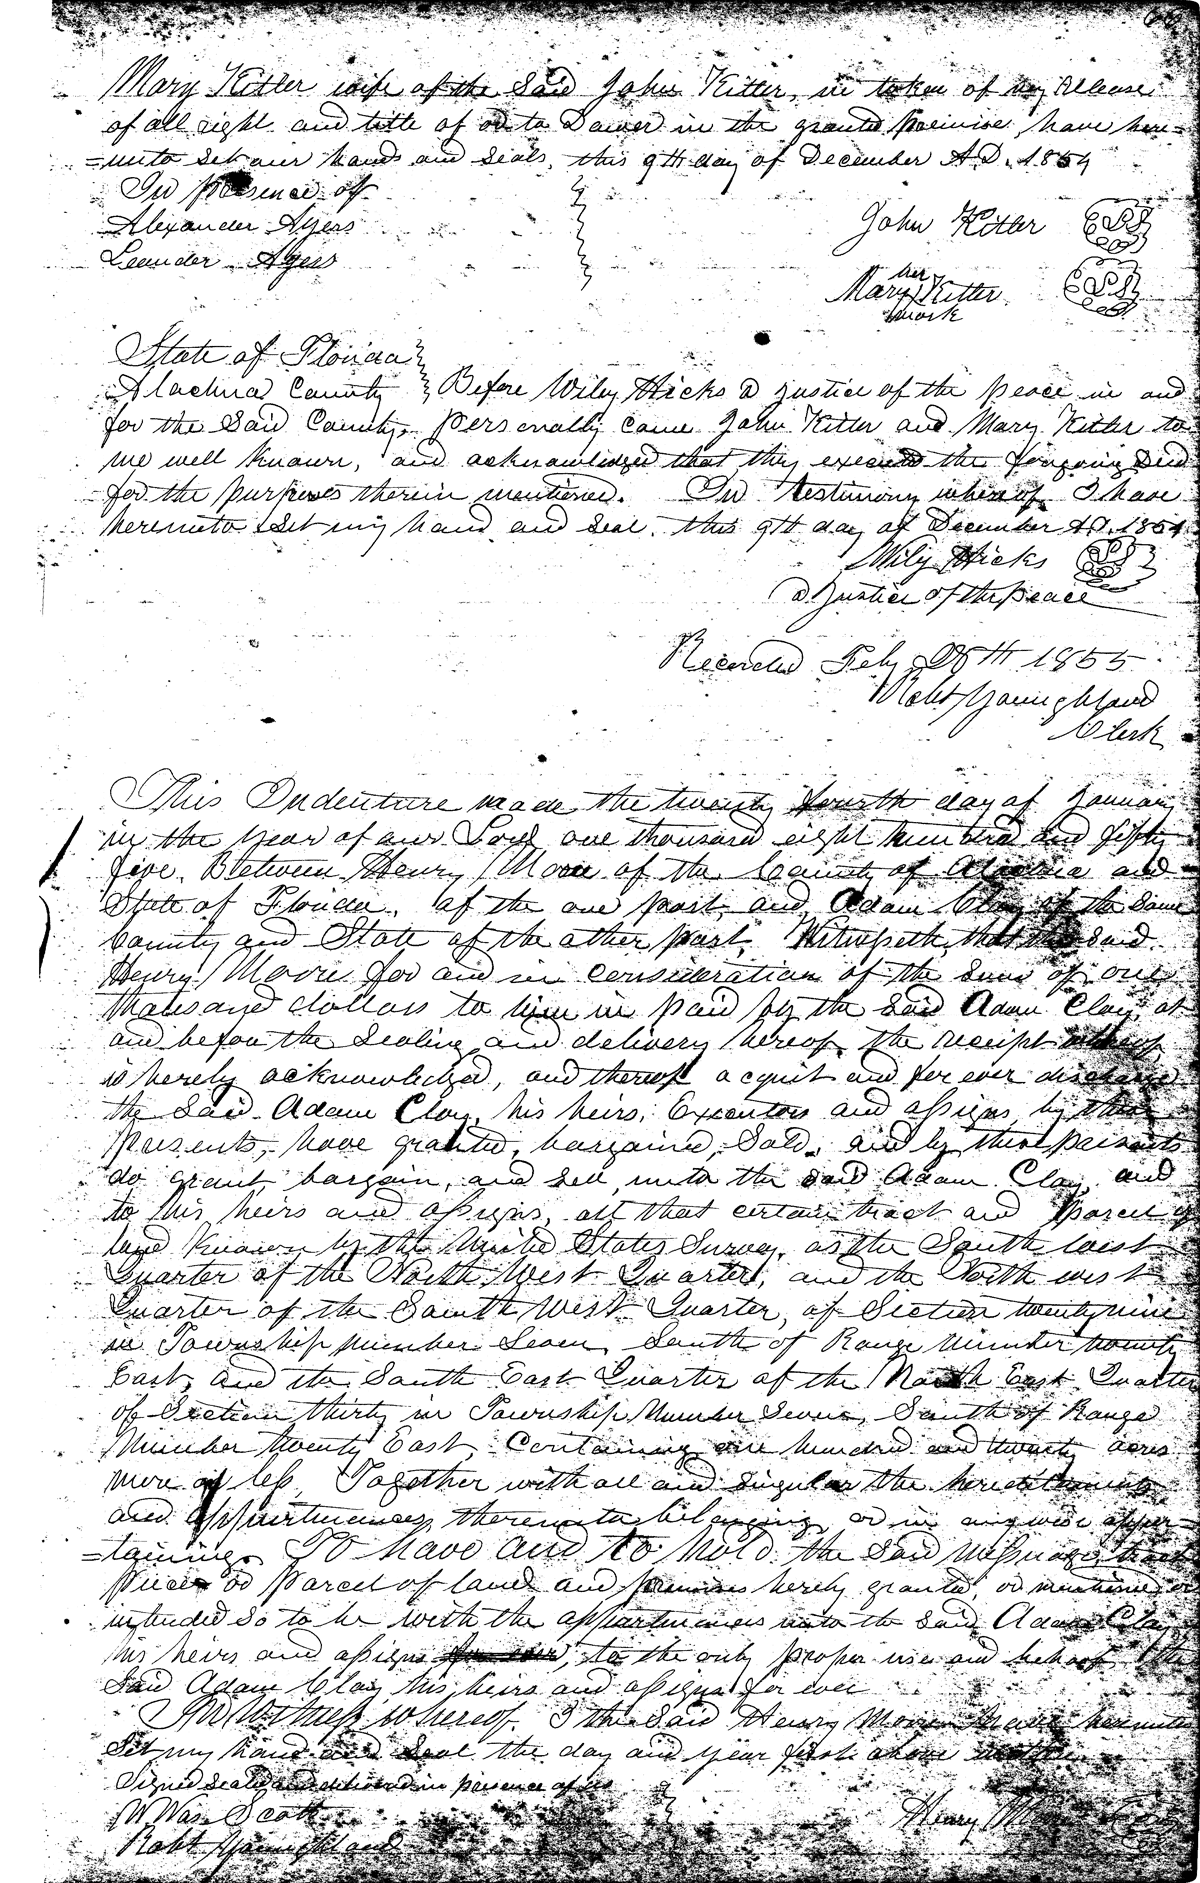 Mary Kitler wife of the Said John Kitler, in token of my Release
of all right and title of or to Dower in the granted Premise, have here=
=unto set our hands and Seals, this 9th day of December A.D. 1854
In presence of
Alexander Ayers
John Kitler LS
Leander Ayers
her
Mary Kitler LS
mark
State of Florida
Alachua County Before Wily Hicks a Justice of the peace in and
for the Said County, personally came John Kitler and Mary Kitler to
me well known, and acknowledged that they executed the forgoing Deed
for the purposes therein mentioned. In testimony whereof I have
hereunto set my hand and seal this 9th day of December A.D. 1854
Wily Hicks LS
a Justice of the peace
Recorded Feby 1855
Robt Younghland
Clerk
This Indenture made the twenty fourth day of January
in the year of our Lord one thousand eight hundred and fifty
five, Between Henry Moore of the County of Alachua and
State of Florida, of the one part, and Adam Clay of the Same
County and State of the other part, Witnesseth, that the Said
Henry Moore for and in consideration of the Sum of one
thousand dollars to him in paid by the Said Adam Clay, at
and before the Sealing and delivery hereof, the receipt whereof
is hereby acknowledged, and thereof acquit and for ever discharge
the Said Adam Clay, his heirs, Executors and assigns, by these
presents, have granted, bargained, Sold, and by these presents
do grant, bargain, and sell, unto the said Adam Clay, and
to his heirs and assigns, all that certain tract and parcel of
land known by the United States Survey, as the South West
Quarter of the North West Quarter, and the North west
Quarter of the South West Quarter, of Section twenty nine
in Township number Seven, South of Range Number twenty
East, and the South East Quarter of the North East Quarter
of Section thirty in Township Number Seven, South of Range
Number twenty East, Containing one hundred and twenty acres
more or less, Together with all and singular the hereditaments
and appurtenances thereunto belonging, or in anywise apper=
=taining. To have and to hold the Said Messuage, tract
piece or parcel of land and premises hereby granted, or mentioned or
intended so to be with the appurtenances unto the said Adam Clay
his heirs and assigns for ever, to the only proper use and behoof of the
Said Adam Clay, his heirs and assigns for ever
In Witness whereof I the Said Henry Moore have hereunto
Set my hand and Seal the day and year first above written
Signed Sealed and delivered in presence of us
Wm Scott
Henry Moore
Robt Younghland